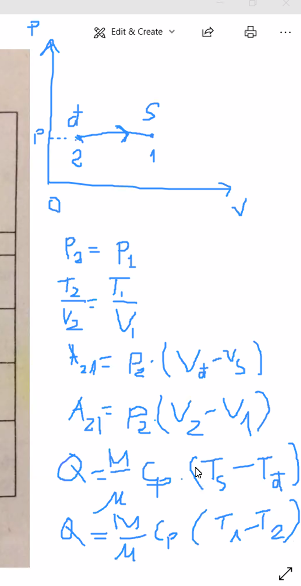 Edit & Create
P
d S
P
2 1
O V
P₂ = P₁
T₂/V₂ = T₁/V₁
A₂₁ = P₂ · (V_d - V_S)
A₂₁ = P₂ · (V₂ - V₁)
Q = M/μ C_p · (T_S - T_d)
Q = M/μ C_p (T₁ - T₂)